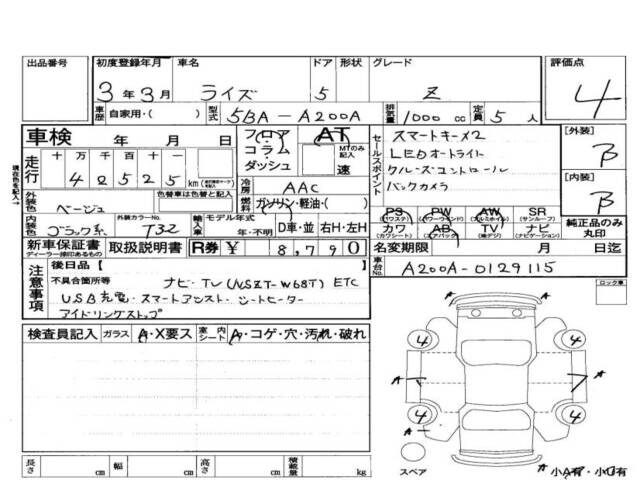 出品番号 初度登録年月 車名 ドア 形状 グレード 評価点
3年3月 ライズ 5 Z 4
車歴 自家用・( ) 型式 5BA-A200A 排気量 1000 cc 定員 5 人
車検 年 月 日
フロア・コラム・ダッシュ AT MTのみ記入 速
スマートキー×2
LEDオートライト
クルーズコントロール
バックカメラ
セールスポイント
[外装] B
[内装] B
純正品のみ丸印
走行 十万千百十一
42525 km
現在色を記入→
外装色 ベージュ 色替車は色替と記入
冷房 AAC
燃料 ガソリン・軽油・( )
内装色 ブラック系 外装カラーNo. T32 輸入車 モデル年式 年・不明 D車・並 右H・左H
PS (パワステ) PW (パワーウィンド) AW (アルミホイル) SR (サンルーフ)
カワ (カワシート) AB (エアバック) TV (地デジ) ナビ (ナビゲーション)
新車保証書 ディーラー捺印あるもの 取扱説明書 R券 ¥ 8,790
名変期限 月 日迄
車台No. A200A-0129115
注意事項 後日品[ ]
不具合箇所等 ナビ・TV (NSZT-W68T) ETC
USB充電・スマートアシスト・シートヒーター
アイドリングストップ
ロック車
検査員記入 ガラス A・X要ス 室内シート A・コゲ・穴・汚れ・破れ
A
4 4
A A
4 4
スペア A 小A有・小U有
長さ cm 幅 cm 高さ cm 積載量 kg